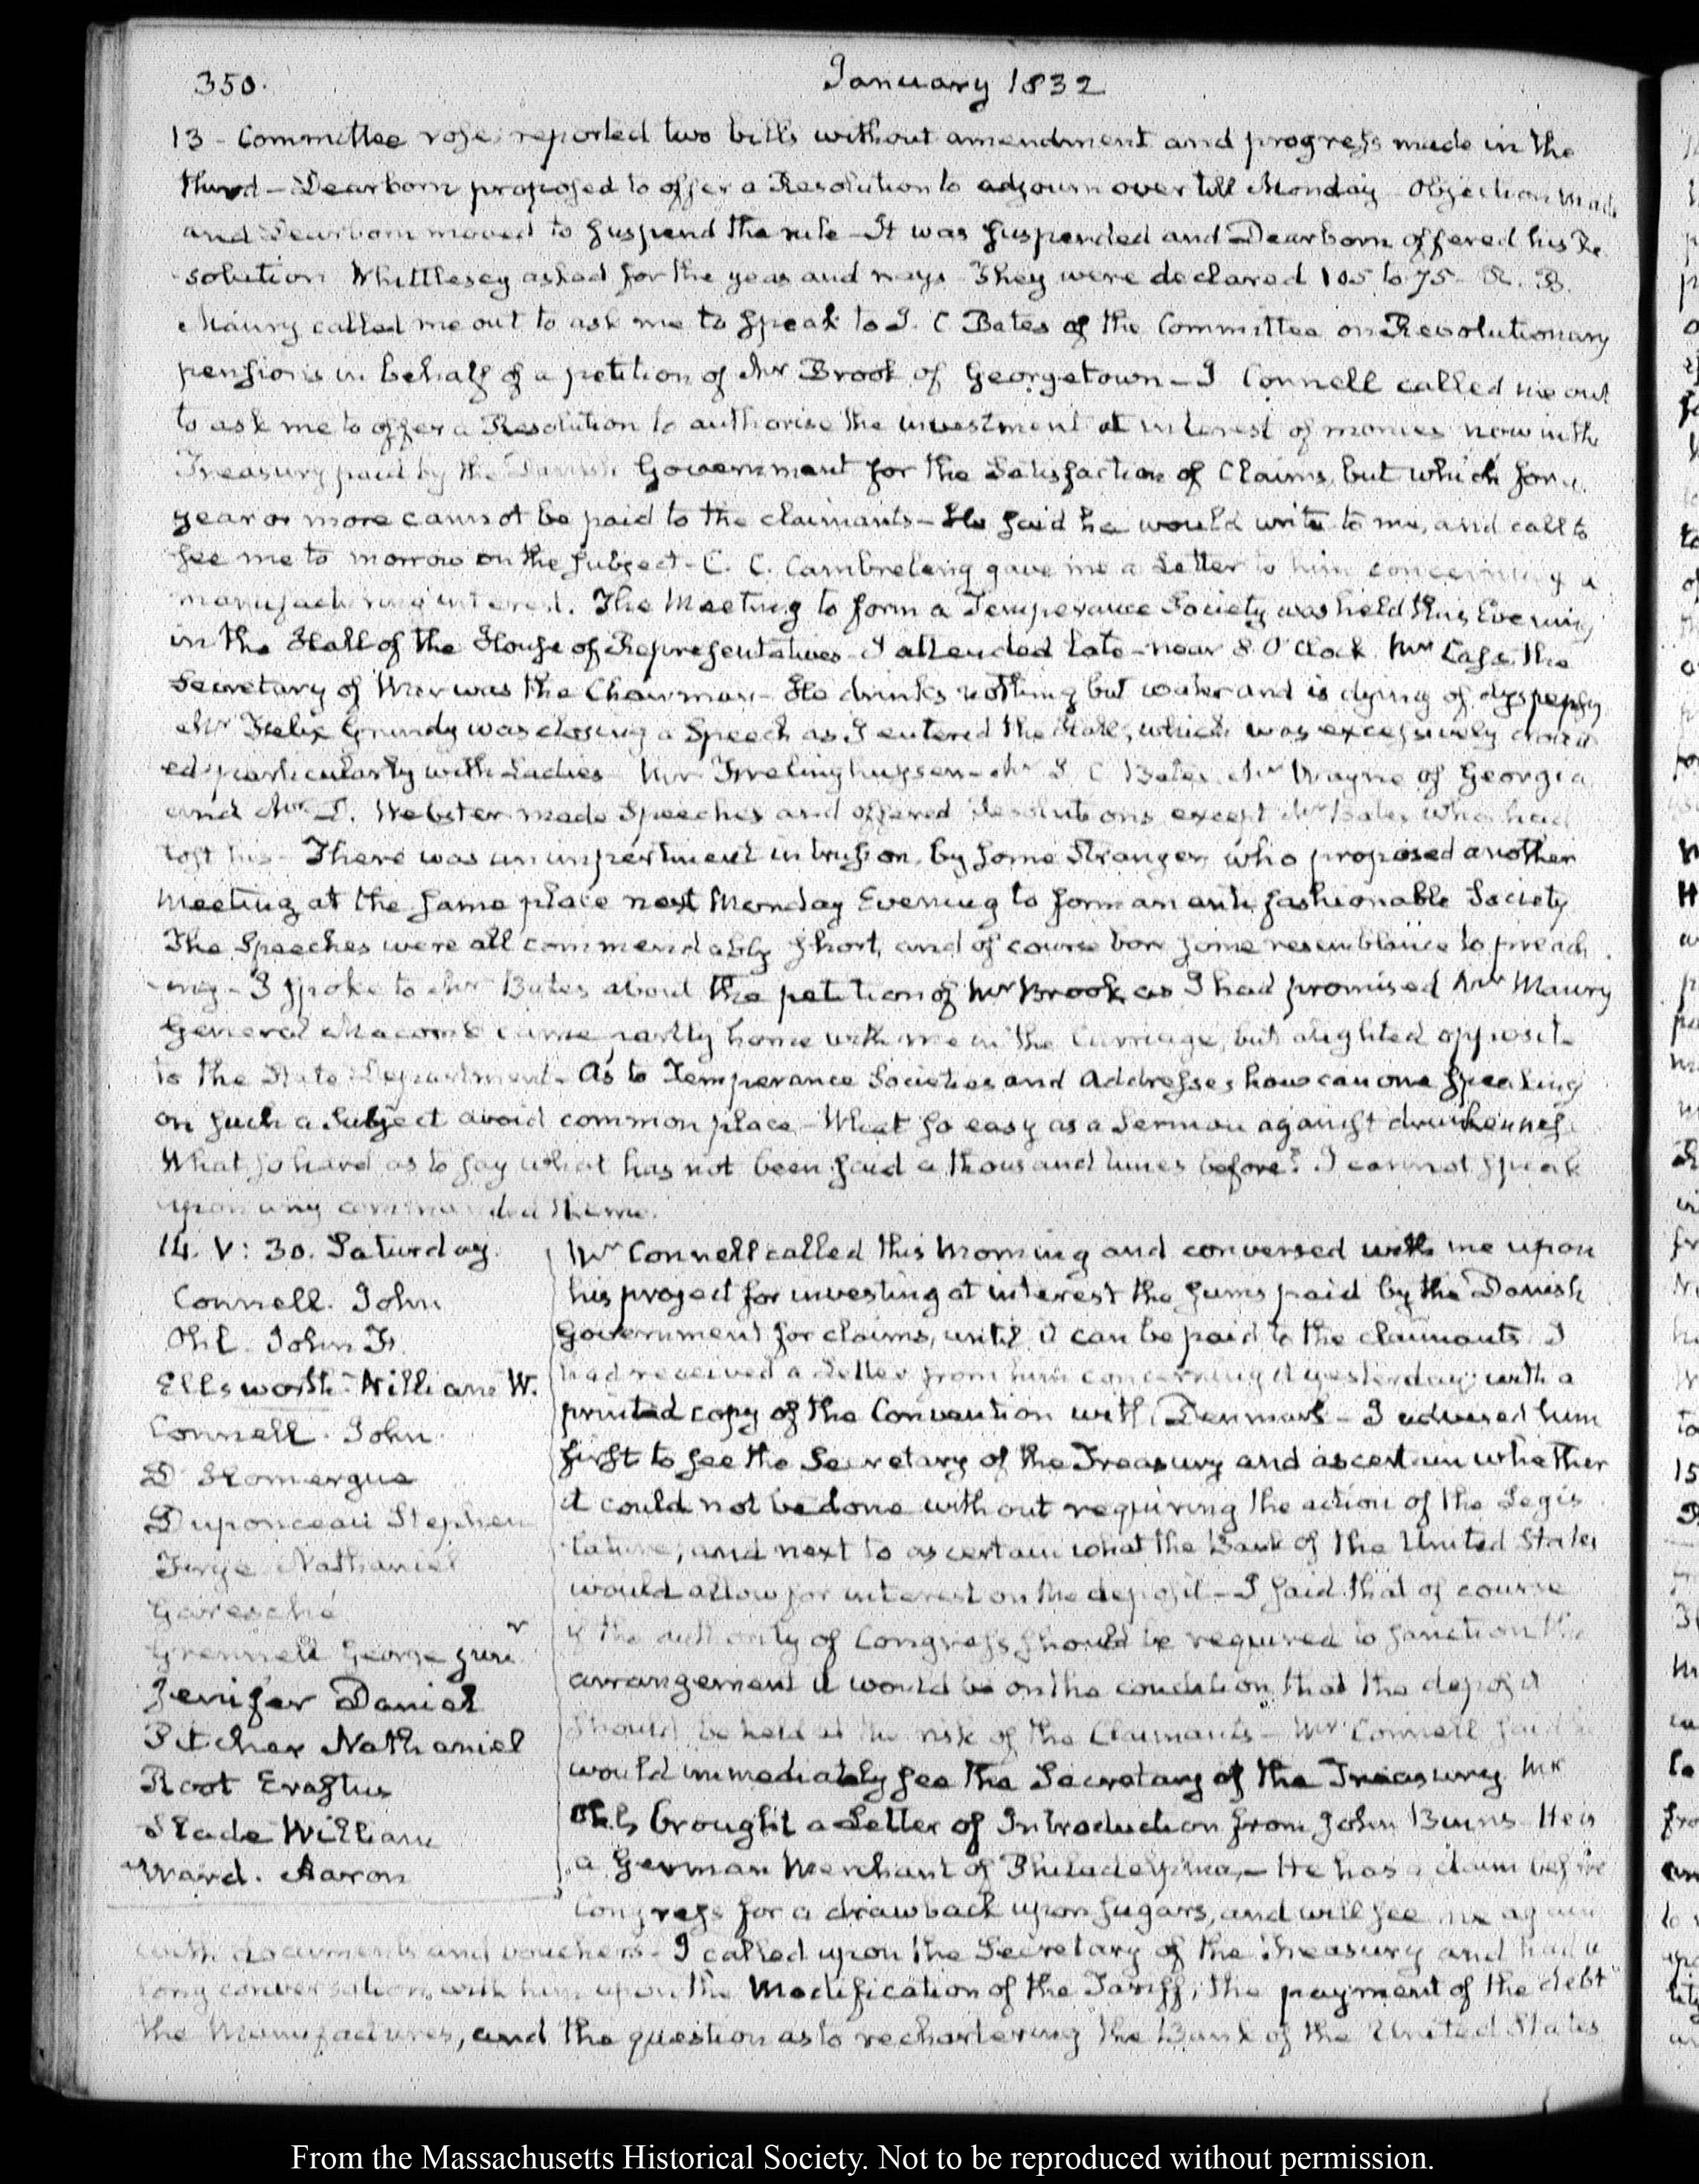 350.
January 1832
13 - Committee rose, reported two bills without amendment and progress made in the
third - Dearborn proposed to offer a Resolution to adjourn over till Monday - Objection made
and Dearborn moved to suspend the rule - It was suspended and Dearborn offered his Re
solution Whittlesey asked for the yeas and nays - They were declared 105 to 75 - R. B.
Maury called me out to ask me to speak to I. C Bates of the Committee on Revolutionary
pensions in behalf of a petition of Mr Brook of Georgetown - J Connell called me out
to ask me to offer a Resolution to authorise the investment at interest of monies now in the
Treasury paid by the Danish Government for the Satisfaction of Claims, but which for a
year or more cannot be paid to the claimants - He said he would write to me, and call to
see me to morrow on the subject - C. C. Cambreleng gave me a Letter to him concerning a
manufacturing interest. The Meeting to form a Temperance Society was held this Evening
in the Hall of the House of Representatives - I attended late - near 8 O'Clock. Mr Cass, the
Secretary of War was the Chairman - He drinks nothing but water and is dying of dyspepsy
Mr Felix Grundy was closing a Speech as I entered the Hall, which was excessively crowd
ed particularly with Ladies Mr Frelinghuysen - Mr I. C Bates, Mr Wayne of Georgia
and Mr D. Webster made Speeches and offered Resolutions except Mr Bates who had
lost his - There was an impertinent intrusion, by some Stranger, who proposed another
Meeting at the same place next Monday Evening to form an anti fashionable Society
The Speeches were all commendably short, and of course bore some resemblance to preach
-ing - I spoke to Mr Bates about the petition of Mr Brook, as I had promised Mr Maury
General Macomb came partly home with me in the Carriage, but alighted opposite
to the State Department - As to Temperance Societies and Addresses how can one speaking
on such a Subject avoid common place - What so easy as a Sermon against drunkenness
What so hard as to say what has not been said a thousand times before? I cannot speak
upon any commanded theme.
14. V: 30. Saturday.
Connell. John
Ohl. John F.
Ellsworth - William W.
Connell. John
D'Homergue
Duponceau Stephen
Frye Nathaniel
Garesché
Grennell George junr
Jenifer Daniel
Pitcher Nathaniel
Root Erastus
Slade William
Ward. Aaron
Mr Connell called this Morning and conversed with me upon
his project for investing at interest the sums paid by the Danish
Government for claims, until it can be paid to the claimants I
had received a Letter from him concerning it yesterday; with a
printed copy of the Convention with Denmark - I advised him
first to see the Secretary of the Treasury and ascertain whether
it could not be done without requiring the action of the Legis
lature; and next to ascertain what the Bank of the United States
would allow for interest on the deposit - I said that of course
if the authority of Congress should be required to sanction the
arrangement it would be on the condition that the deposit
should be held at the risk of the Claimants - Mr Connell said he
would immediately see the Secretary of the Treasury Mr
Ohl, brought a Letter of Introduction from John Burns - He is
a German Merchant of Philadelphia, - He has a claim before
Congress for a drawback upon sugars, and will see me again
with documents and vouchers - I called upon the Secretary of the Treasury and had a
long conversation with him upon the Modification of the Tariff; the payment of the debt
the Manufactures, and the question as to rechartering the Bank of the United States
From the Massachusetts Historical Society. Not to be reproduced without permission.